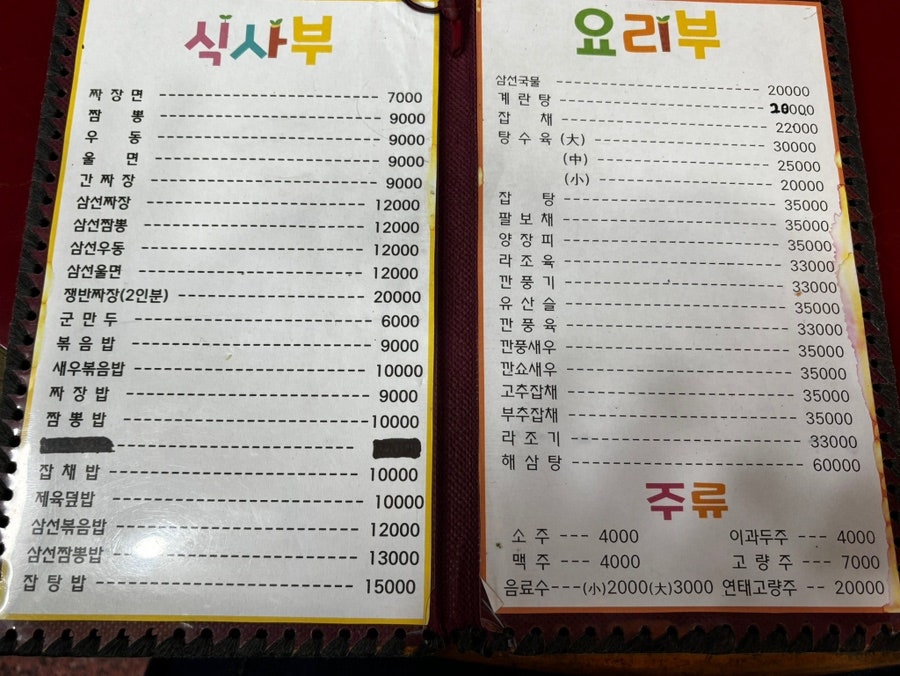 식사부
짜장면 7000
짬 뽕 9000
우 동 9000
울 면 9000
간짜장 9000
삼선짜장 12000
삼선짬뽕 12000
삼선우동 12000
삼선울면 12000
쟁반짜장(2인분) 20000
군만두 6000
볶음밥 9000
새우볶음밥 10000
짜장밥 9000
짬뽕밥 10000
잡채밥 10000
제육덮밥 10000
삼선볶음밥 12000
삼선짬뽕밥 13000
잡탕밥 15000
요리부
삼선국물 20000
계란탕 20000
잡 채 22000
탕수육 (大) 30000
(中) 25000
(小) 20000
잡 탕 35000
팔보채 35000
양장피 35000
라조육 33000
깐풍기 33000
유산슬 35000
깐풍육 33000
깐풍새우 35000
깐쇼새우 35000
고추잡채 35000
부추잡채 35000
라조기 33000
해삼탕 60000
주류
소 주 --- 4000 이과두주 --- 4000
맥 주 --- 4000 고량주 --- 7000
음료수---(小)2000(大)3000 연태고량주 -- 20000